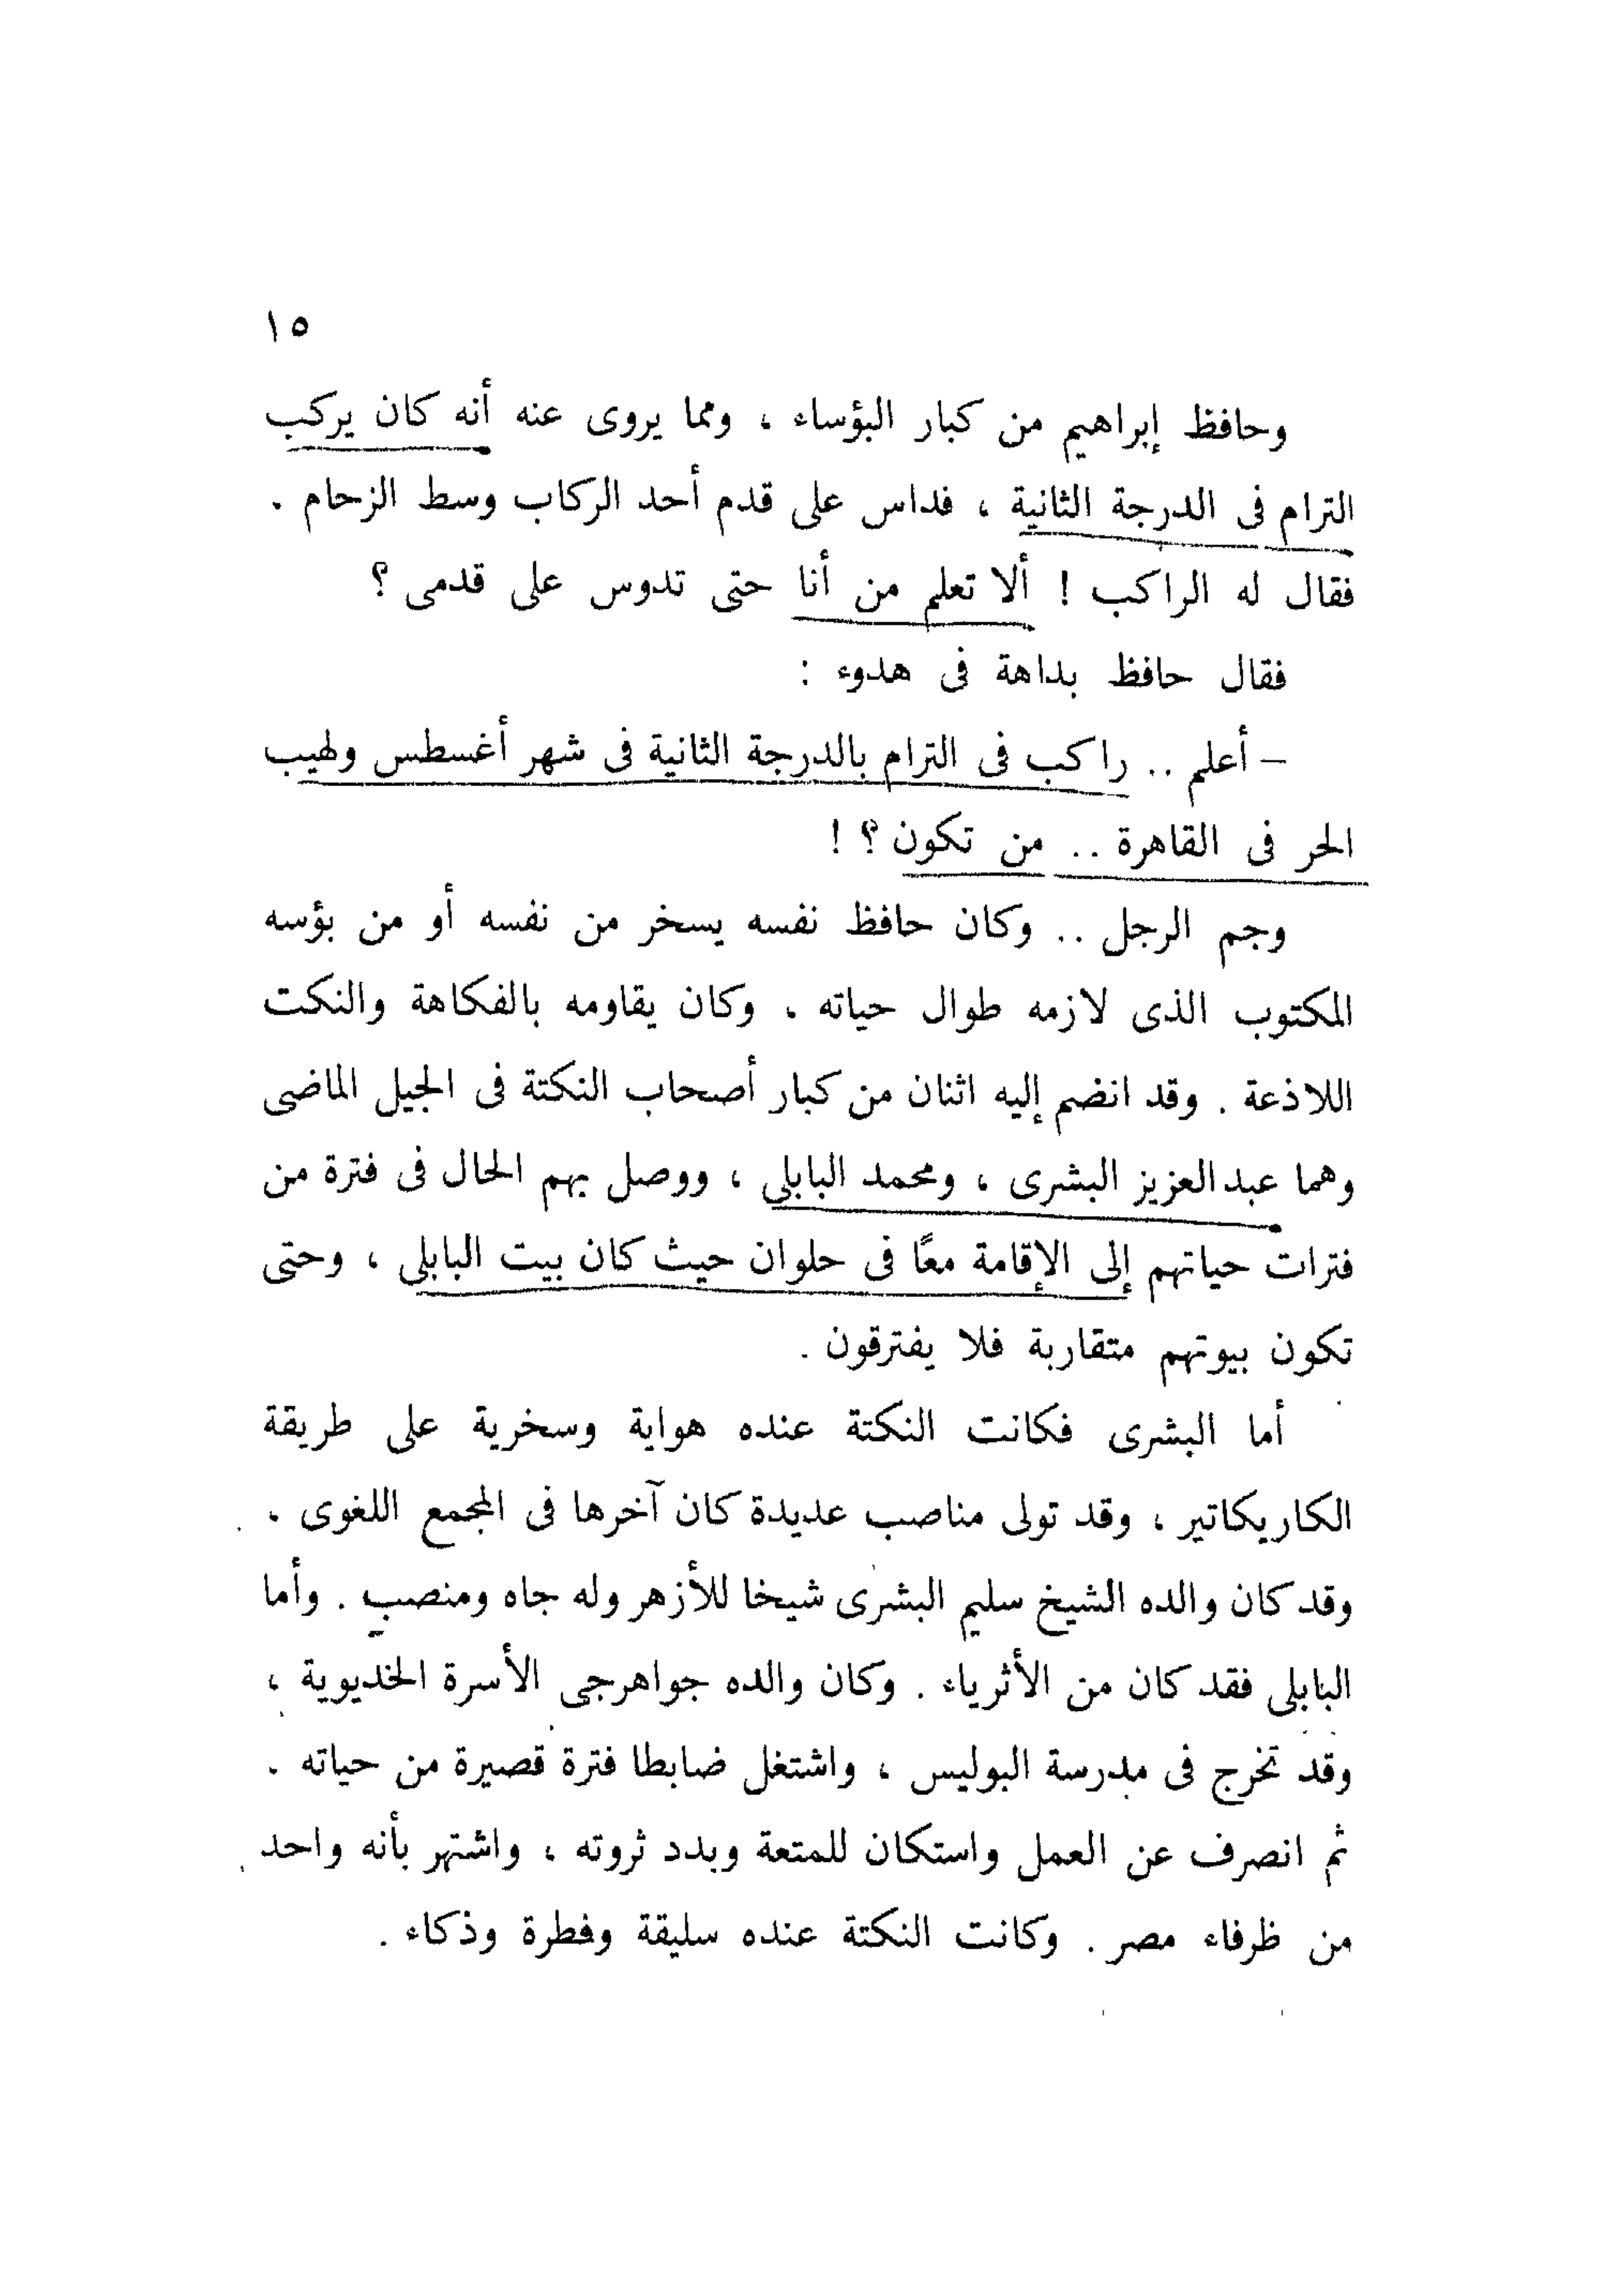 ١٥
وحافظ إبراهيم من كبار البؤساء ، ومما يروى عنه أنه كان يركب
الترام فى الدرجة الثانية ، فداس على قدم أحد الركاب وسط الزحام .
فقال له الراكب ! ألا تعلم من أنا حتى تدوس على قدمى ؟
فقال حافظ بداهة فى هدوء :
– أعلم .. راكب فى الترام بالدرجة الثانية فى شهر أغسطس ولهيب
الحر فى القاهرة .. من تكون ؟ !
وجم الرجل .. وكان حافظ نفسه يسخر من نفسه أو من بؤسه
المكتوب الذى لازمه طوال حياته ، وكان يقاومه بالفكاهة والنكت
اللاذعة . وقد انضم إليه اثنان من كبار أصحاب النكتة فى الجيل الماضى
وهما عبد العزيز البشرى ، ومحمد البابلى ، ووصل بهم الحال فى فترة من
فترات حياتهم إلى الإقامة معًا فى حلوان حيث كان بيت البابلى ، وحتى
تكون بيوتهم متقاربة فلا يفترقون .
أما البشرى فكانت النكتة عنده هواية وسخرية على طريقة
الكاريكاتير ، وقد تولى مناصب عديدة كان آخرها فى المجمع اللغوى .
وقد كان والده الشيخ سليم البشرى شيخا للأزهر وله جاه ومنصب . وأما
البابلى فقد كان من الأثرياء . وكان والده جواهرجى الأسرة الخديوية ،
وقد تخرج فى مدرسة البوليس ، واشتغل ضابطا فترة قصيرة من حياته .
ثم انصرف عن العمل واستكان للمتعة وبدد ثروته ، واشتهر بأنه واحد
من ظرفاء مصر . وكانت النكتة عنده سليقة وفطرة وذكاء .